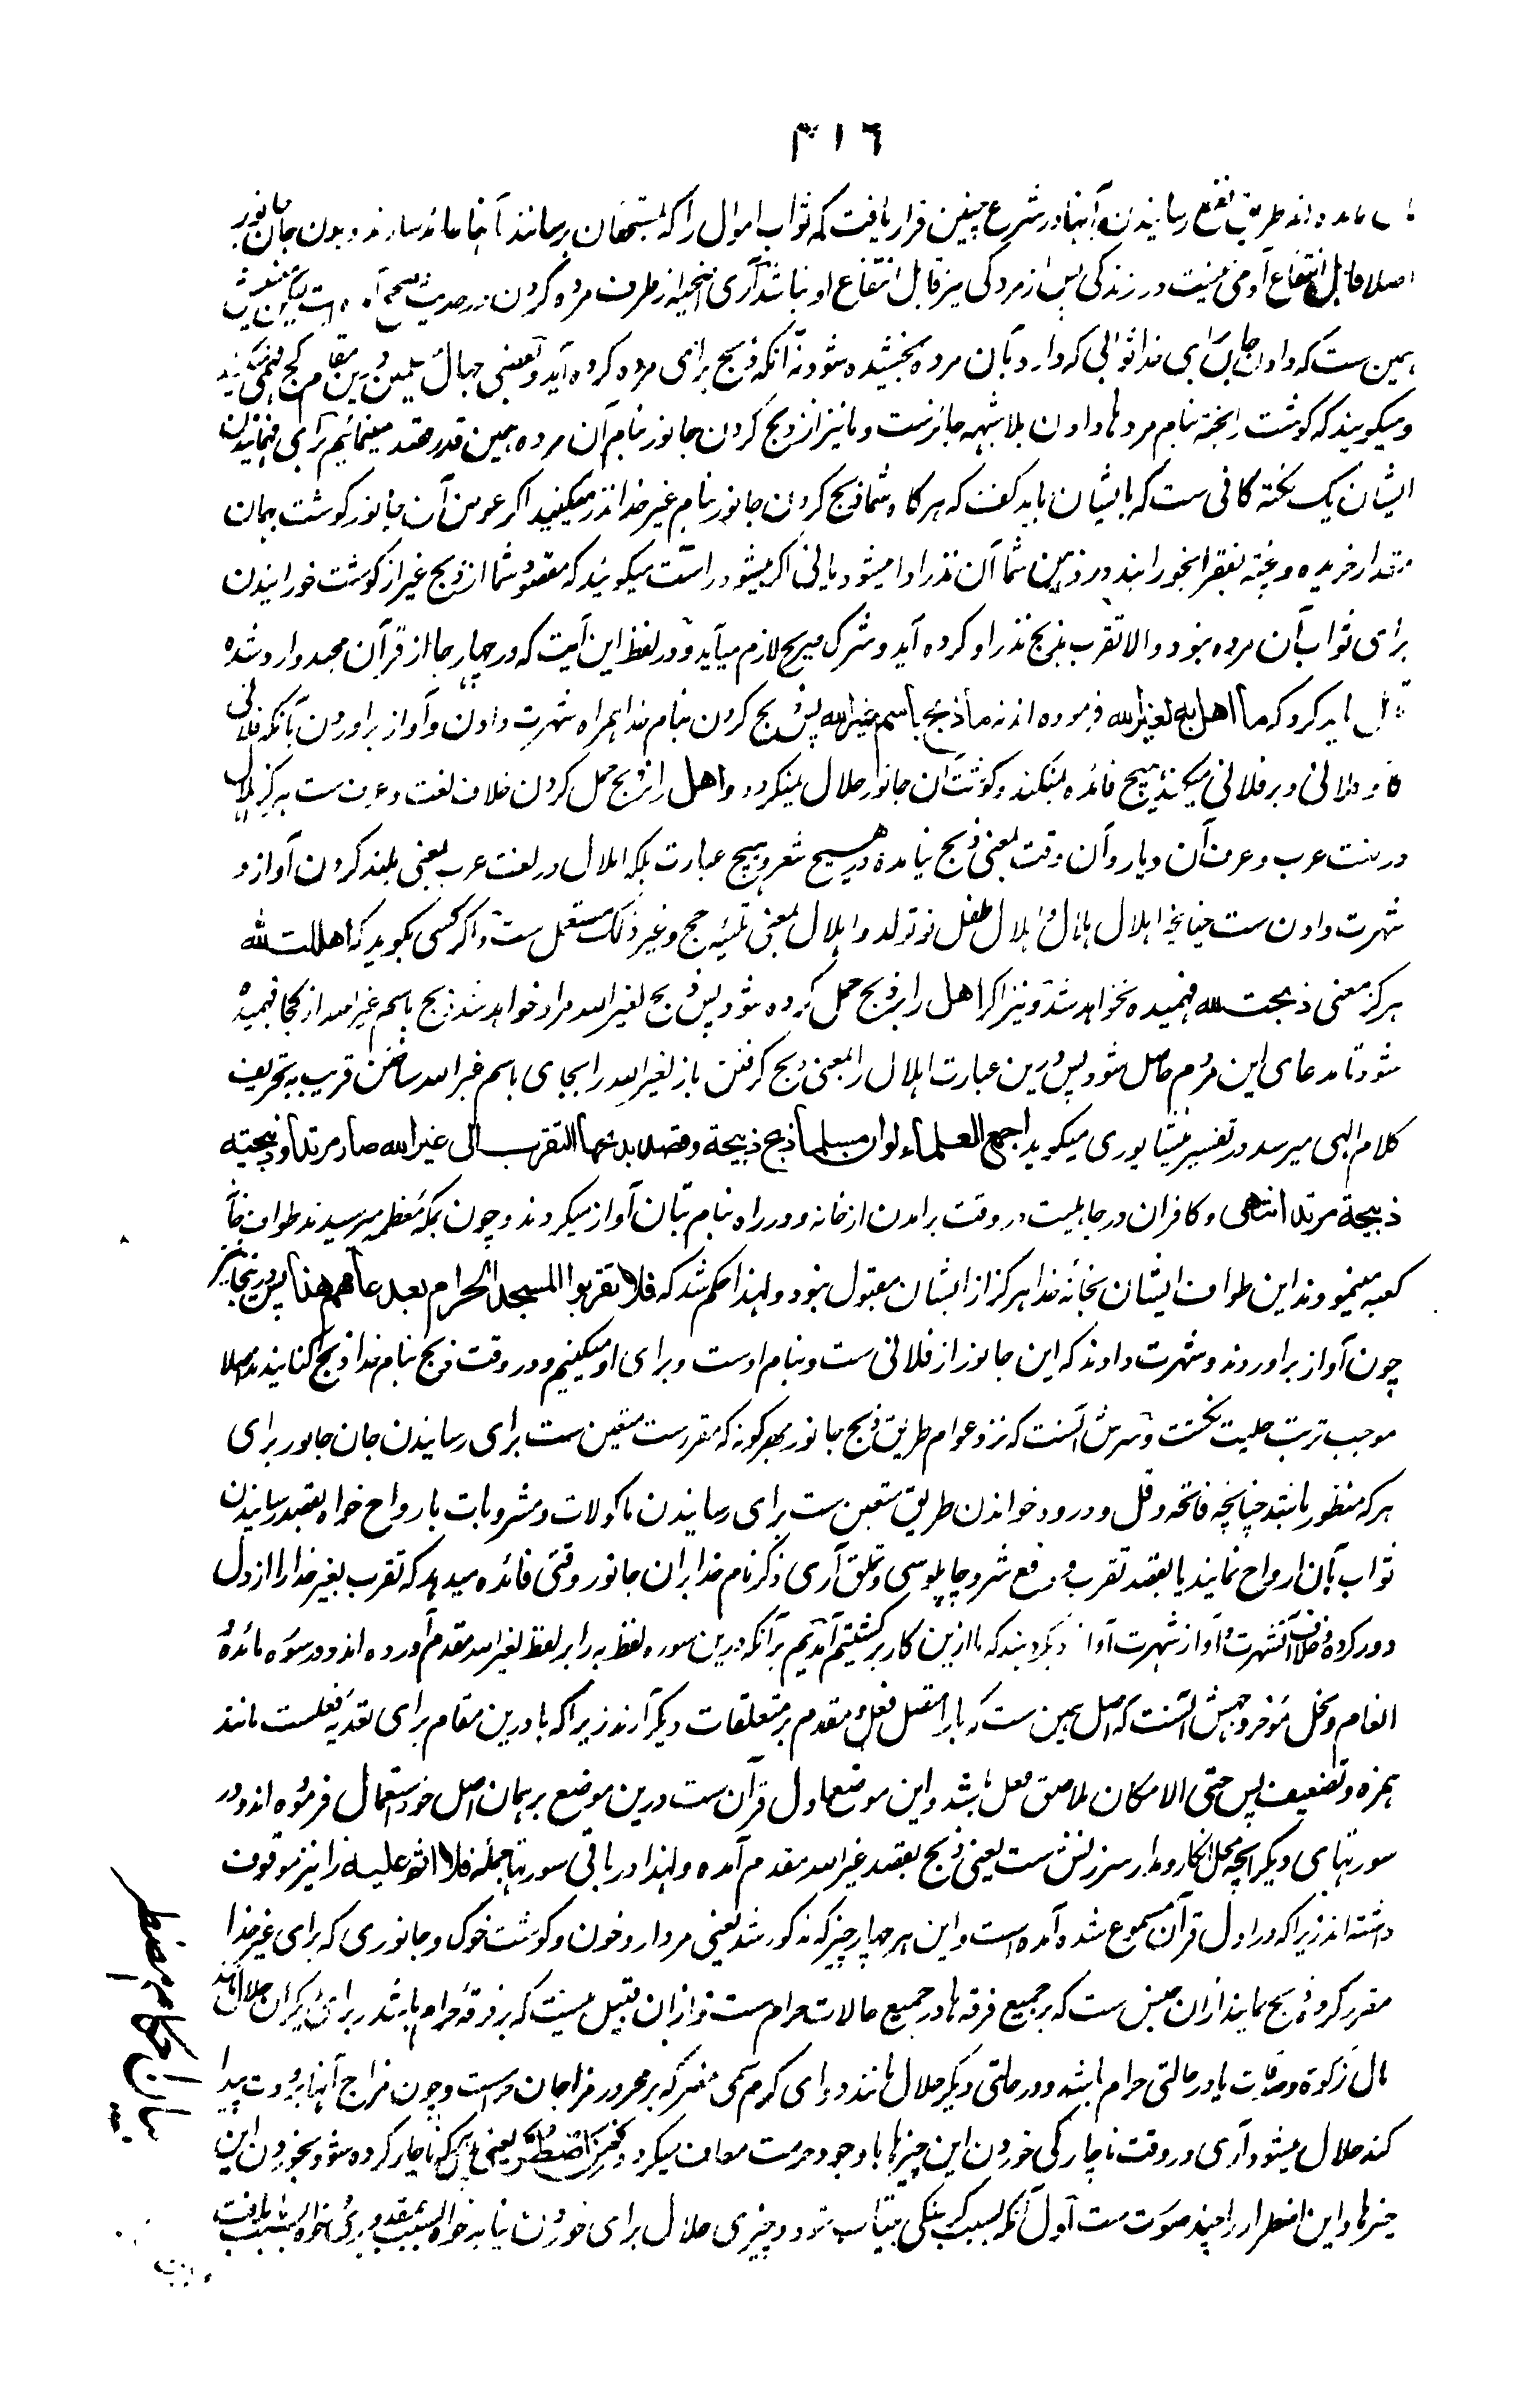 ۳۱۶
طریق نفع رسانیدن بآنها در شرع چنین قرار یافت که ثواب اموال را که بمستحقان برسانند آنها عائد سازند و چون جان جانور
اصلا قابل انتفاع آدمی نیست در زندگی پس از مردگی نیز قابل انتفاع او نباشد آری اضحیه از طرف مرده کردن در حدیث صحیح آمده است
همین ست که دادن جان برای خدا ثوابی که دارد بآن مرده بخشیده شود نه آنکه ذبح برای مرده کرده آید و بعضی جهال مسلمین درین مقام کج فهمی میکنند
و میگویند که گوشت را پخته بنام مردها دادن بلا شبهه جائزست و ما نیز از ذبح کردن جانور بنام آن مرده همین قدر قصد مینمائیم برای فهمانیدن
ایشان یک نکته کافی ست که بایشان باید گفت که هرگاه شما ذبح کردن جانور بنام غیر خدا نذر میکنید اگر عوض آن جانور گوشت بهمان
مقدار خریده و پخته بفقرا بخورانید در ذهن شما آن نذر ادا میشود یا نی اگر میشود راست میگوئید که مقصود شما از ذبح غیر از گوشت خورانیدن
برای ثواب آن مرده نبود والا تقرب بذبح نذر او کرده آید و شرک صریح لازم میآید و در لفظ این آیت که در چهار جا از قرآن مجید وارد شده
باید کرد که ما اهل به لغیر الله فرموده اند نه ما ذبح باسم غیر الله پس ذبح کردن بنام خدا همراه شهرت دادن و آواز براوردن بآنکه فلانی
گاو فلانی و بز فلانی میکند هیچ فائده نمیکند و گوشت آن جانور حلال نمیگردد و اهل را بر ذبح حمل کردن خلاف لغت و عرف ست هرگز اهلال
در لغت عرب و عرف آن دیار و آن وقت بمعنی ذبح نیامده در هیچ شعر و هیچ عبارت بلکه اهلال در لغت عرب بمعنی بلند کردن آواز و
شهرت دادن ست چنانچه اهلال هلال و اهلال طفل نو تولد و اهلال بمعنی تلبیه حج و غیر ذلک مستعمل ست و اگر کسی بگوید که اهللت لله
هرگز معنی ذبحت لله فهمیده نخواهد شد و نیز اگر اهل را بر ذبح حمل کرده شود پس ذبح لغیر الله مراد خواهد شد ذبح باسم غیر الله از کجا فهمیده
شود تا مدعای این مردم حاصل شود پس درین عبارت اهلال را بمعنی ذبح گرفتن باز لغیر الله را بجای باسم غیر الله ساختن قریب به تحریف
کلام الهی میرسد در تفسیر نیشاپوری میگوید اجمع العلماء لو ان مسلما ذبح ذبیحة و قصد بذبحها التقرب الی غیر الله صار مرتدا و ذبیحته
ذبیحة مرتد انتهی و کافران در جاهلیت در وقت برامدن از خانه و در راه بنام بتان آواز میکردند و چون بمکه معظمه میرسیدند طواف خانه
کعبه مینمودند این طواف ایشان بخانه خدا هرگز از ایشان مقبول نبود و لهذا حکم شد که فلا تقربوا المسجد الحرام بعد عامهم هذا پس درینجا نیز
چون آواز براوردند و شهرت دادند که این جانور از فلانی ست و بنام اوست و برای او میکنیم و در وقت ذبح بنام خدا ذبح کنانیدند اصلا
موجب ترتب حلیت نگشت و سرش آنست که نزد عوام طریق ذبح جانور بهر گونه که مقررست متعین ست برای رسانیدن جان جانور برای
هر که منظور باشد چنانچه فاتحه و قل و درود خواندن طریق متعین ست برای رسانیدن ماکولات و مشروبات بارواح خواه بقصد رسانیدن
ثواب بآن ارواح نمایند یا بقصد تقرب و دفع شر و چاپلوسی و تملق آری ذکر نام خدا بران جانور وقتی فائده میدهد که تقرب بغیر خدا را از دل
دور کرده و خلاف آن شهرت و آواز شهرت آواز دیگر دهند که ما ازین کار برگشتیم آمدیم برآنکه درین سوره لفظ به را بر لفظ لغیر الله مقدم آورده اند و در سوره مائده و
انعام و نحل مؤخر و جهش آنست که اصل همین ست که با را متصل فعل و مقدم بر متعلقات دیگر آرند زیرا که با درین مقام برای تعدیه فعلست مانند
همزه و تضعیف پس حتی الامکان ملاصق فعل باشد و این موضع اول قرآن ست درین موضع بر همان اصل خود استعمال فرموده اند و در
سورتهای دیگر آنچه محل انکار و مدار سرزنش ست یعنی ذبح بقصد غیر الله مقدم آمده و لهذا در باقی سورتها جمله فلا اثم علیه را نیز موقوف
داشته اند زیرا که در اول قرآن مسموع شده آمده است و این هر چهار چیز که مذکور شد یعنی مردار و خون و گوشت خوک و جانوری که برای غیر خدا
مقرر کرده ذبح نمایند ازان جنس ست که بر جمیع فرقه ها در جمیع حالات حرام ست نه ازان قبیل نیست که بر فرقه حرام باشد و برای دیگران حلال مانند
مال زکوة و صدقات یا در حالتی حرام باشد و در حالتی دیگر حلال مانند دوای گرم سمی مضر که بر محرور مزاجان حرامست و چون مزاج آنها برودت پیدا
کند حلال میشود آری در وقت ناچارگی خوردن این چیزها با وجود حرمت معاف میگردد فمن اضطر یعنی پس هر که ناچار کرده شود بخوردن این
چیزها و این اضطرار را چند صورت ست اول آنکه بسبب گرسنگی بیتاب شود و چیزی حلال برای خوردن نیابد خواه بسبب بی مقدوری خواه بسبب نایافت
بیان حکم مضطر